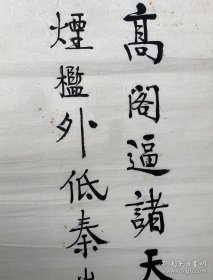 高閣逼諸天
煙檻外低秦